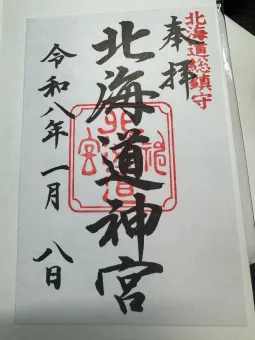 北海道総鎮守
奉拝
北海道神宮
令和八年一月八日